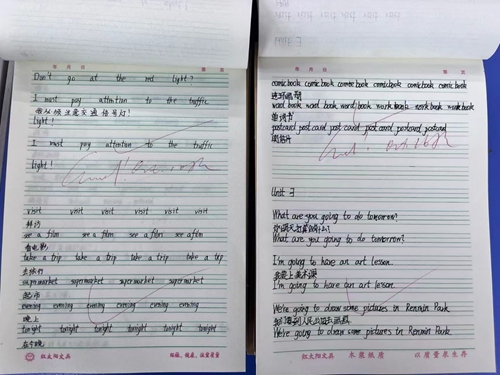 Don't go at the red light?
I must pay attention to the traffic
我必须注意交通信号灯!
light!
I must pay attention to the traffic
light!
visit visit visit visit visit
拜访
see a film see a film see a film
看电影
take a trip take a trip take a trip take a trip
去旅行
supermarket supermarket supermarket supermarket
超市
evening evening evening evening evening
晚上
tonight tonight tonight tonight tonight
在今晚
红太阳文具
comic book comic book comic book comic book comic book comic book
连环画册
word book word book word book work book work book work book
单词书
postcard post card post card post card postcard postcard
明信片
Unit 3
What are you going to do tomorrow?
你明天打算做什么?
What are you going to do tomorrow?
I'm going to have an art lesson.
我要上美术课
I'm going to have an art lesson.
We're going to draw some pictures in Renmin Park
We're going to draw some pictures in Renmin Park
红太阳文具 木浆纸质 以质量求生存